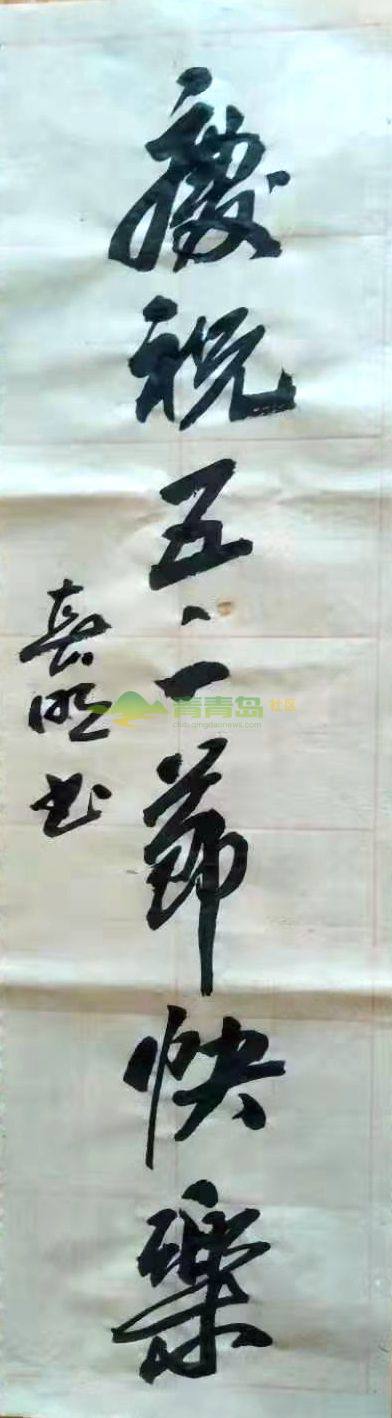 慶祝五·一節快樂
喜旺书
青青岛社区
club.qingdaonews.com